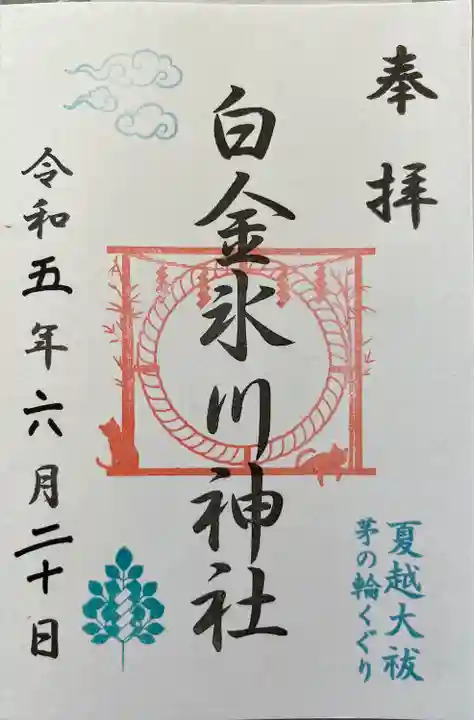 奉拝
白金氷川神社
夏越大祓
茅の輪くぐり
令和五年六月二十日